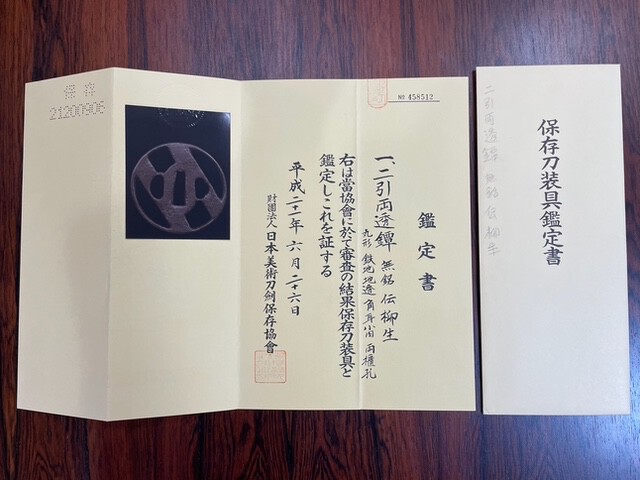 保存
21200906
№ 458512
鑑定書
一、二引両透鐔 無銘 伝柳生
丸形 鉄地 地透 角耳小肉 両櫃孔
右は當協會に於て審査の結果保存刀装具と
鑑定しこれを証する
平成二十一年六月二十六日
財團法人 日本美術刀劍保存協會
保存刀装具鑑定書
二引両透鐔 無銘 伝柳生